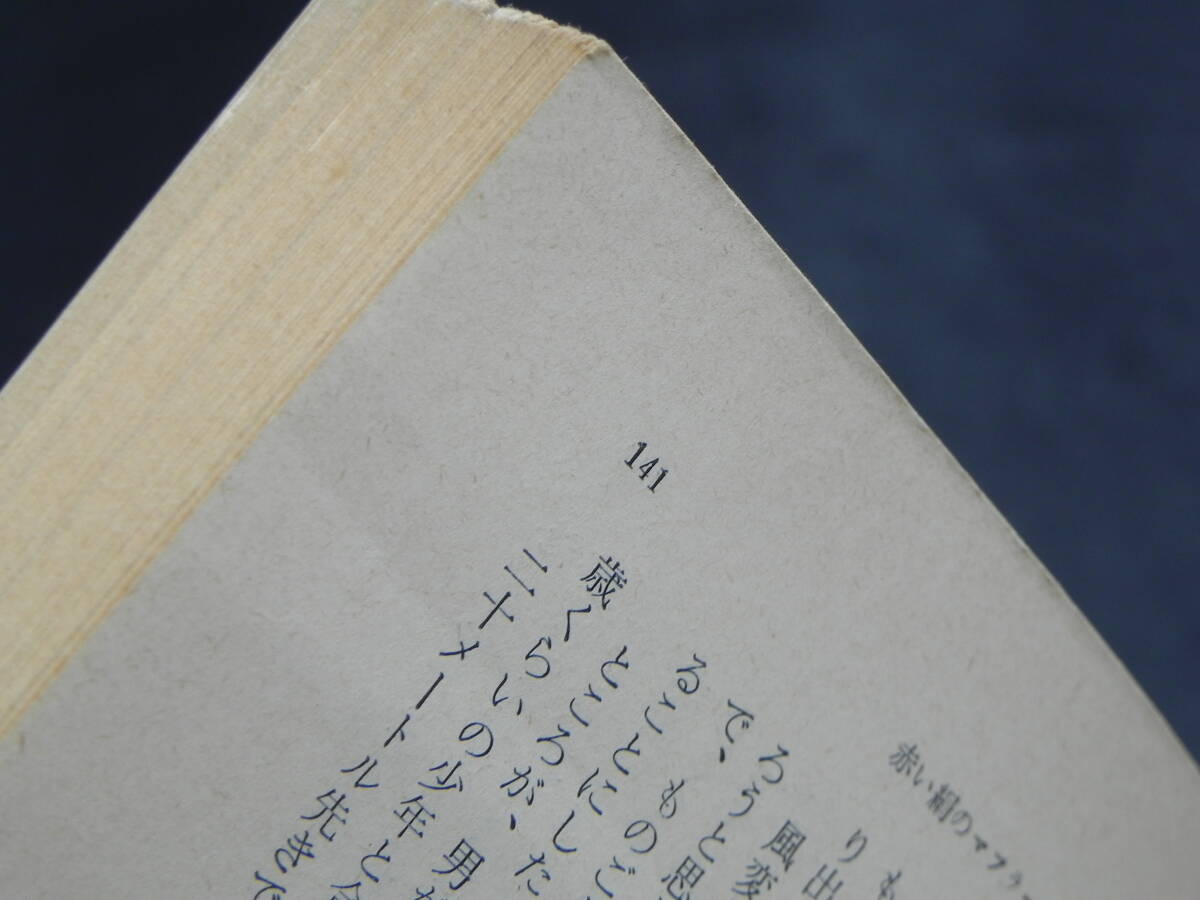 141
赤い絹のマフラ
も
り出
風変
ろうと思
で、ものご
ることにした
ところが、男
歳くらいの少年と
二十メートル先きで